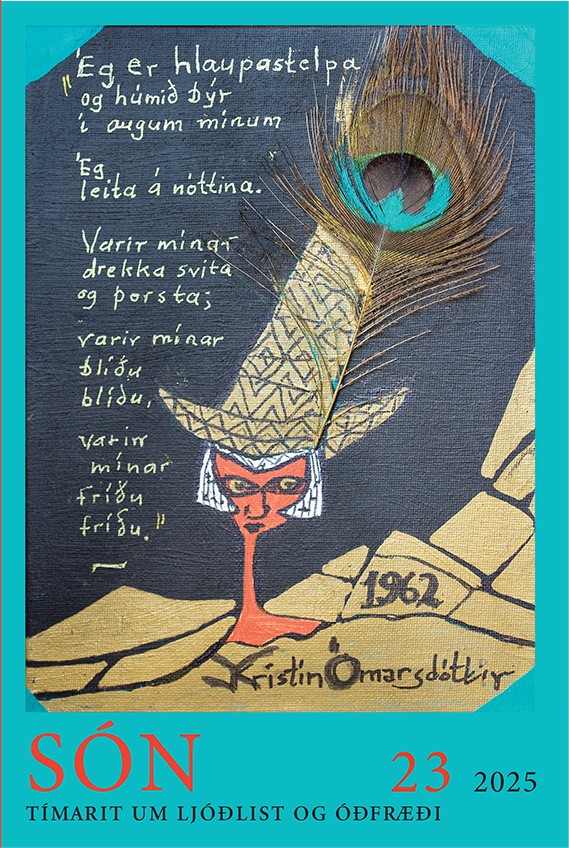 "Ég er hlaupastelpa
og húmið býr
í augum mínum
Ég
leita á nóttina.
Varir mínar
drekka svita
og þorsta;
varir mínar
blíðu
blíðu,
varir
mínar
fríðu
fríðu."
1962
Kristín Ómarsdóttir
SÓN 23 2025
TÍMARIT UM LJÓÐLIST OG ÓÐFRÆÐI